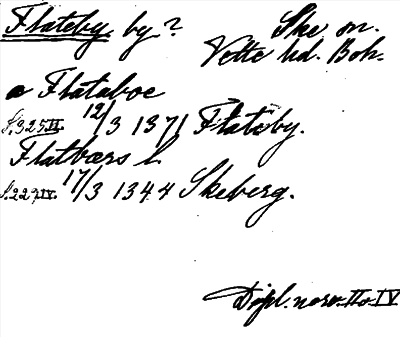 Flateby. by?
Ske sn.
Vette hd. Boh.
a Flataboe
S.325 II. 12/3 1371 Flatëby.
Flatbærs l.
S.227 IV. 17/3 1344 Skeberg.
Dipl. norv. II o. IV